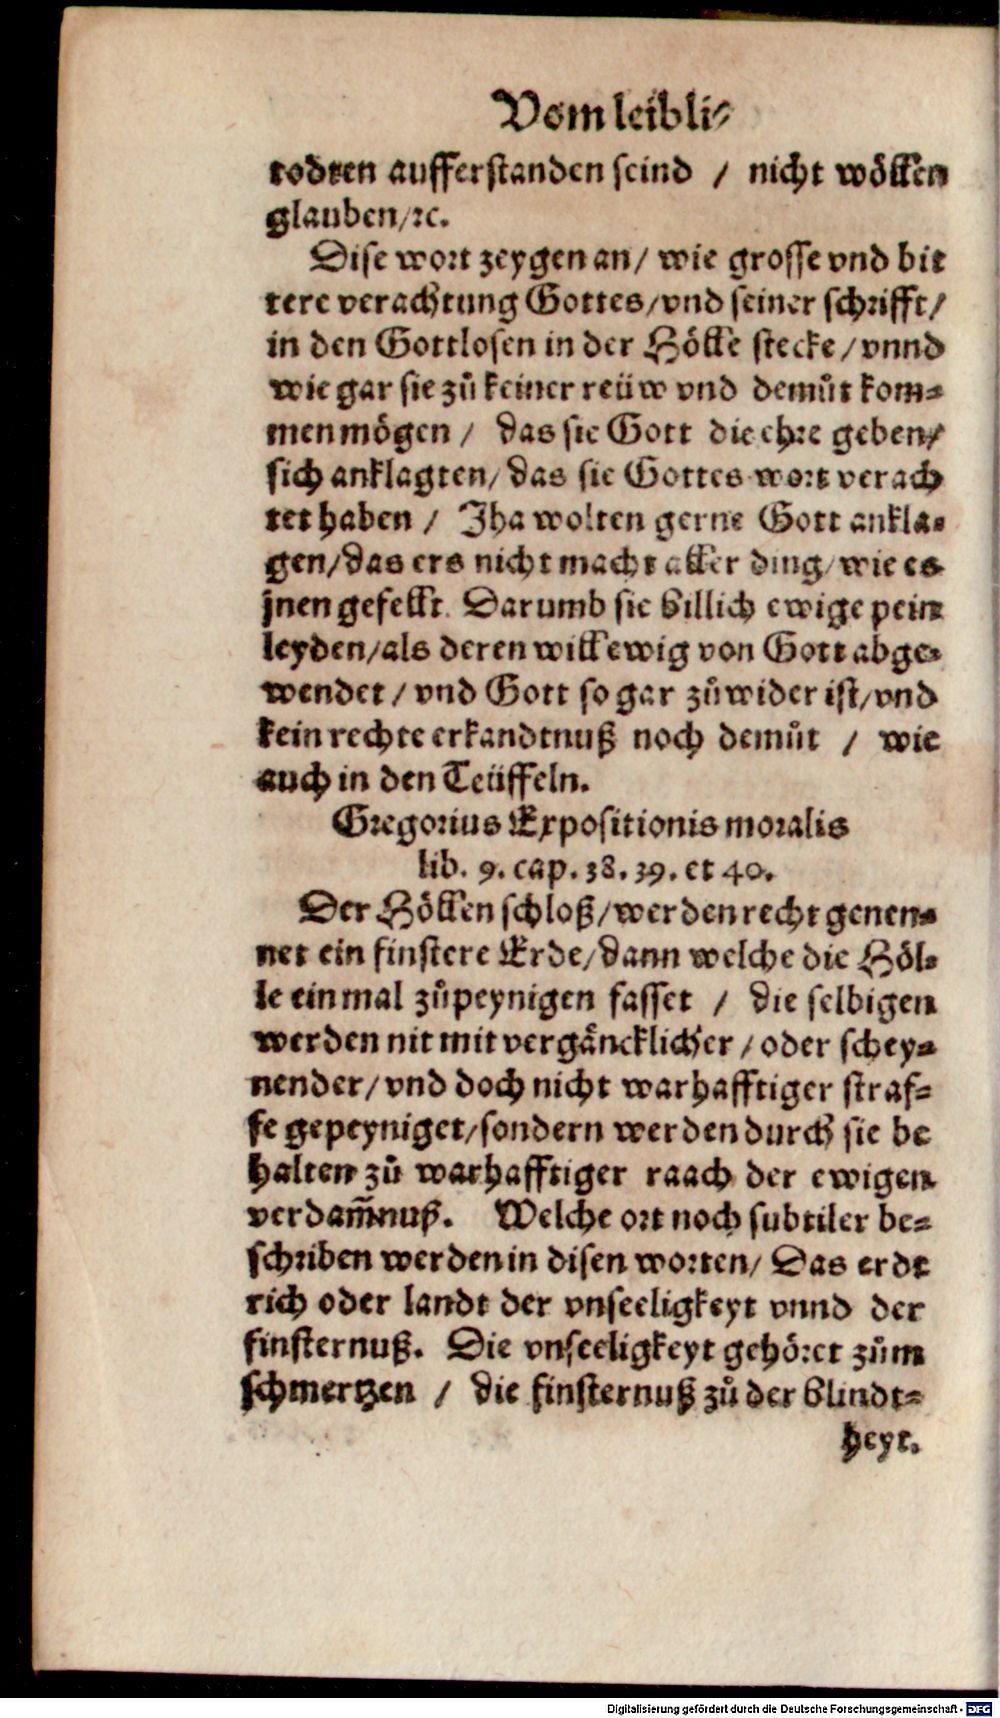 Vom leibli⸗
todten aufferstanden seind / nicht wöllen
glauben/ꝛc.
Dise wort zeygen an/ wie grosse vnd bit
tere verachtung Gottes/vnd seiner schrifft/
in den Gottlosen in der Hölle stecke/vnnd
wie gar sie zů keiner reüw vnd demůt kom⸗
men mögen / das sie Gott die ehre geben/
sich anklagten/ das sie Gottes wort verach
tet haben / Jha wolten gerne Gott ankla⸗
gen/das ers nicht macht aller ding/wie es
jnen gefellt. Darumb sie billich ewige pein
leyden/als deren will ewig von Gott abge⸗
wendet / vnd Gott so gar zůwider ist/vnd
kein rechte erkandtnuß noch demůt / wie
auch in den Teüffeln.
Gregorius Expositionis moralis
lib. 9. cap. 38. 39. et 40.
Der Höllen schloß/werden recht genen⸗
net ein finstere Erde/dann welche die Höl⸗
le ein mal zůpeynigen fasset / die selbigen
werden nit mit vergäncklicher/oder schey⸗
nender/vnd doch nicht warhafftiger straf⸗
fe gepeyniget/sondern werden durch sie be
halten zů warhafftiger raach der ewigen
verdam̄nuß. Welche ort noch subtiler be⸗
schriben werden in disen worten/ Das erdt
rich oder landt der vnseeligkeyt vnnd der
finsternuß. Die vnseeligkeyt gehöret zům
schmertzen / die finsternuß zů der blindt⸗
heyt.
Digitalisierung gefördert durch die Deutsche Forschungsgemeinschaft - DFG